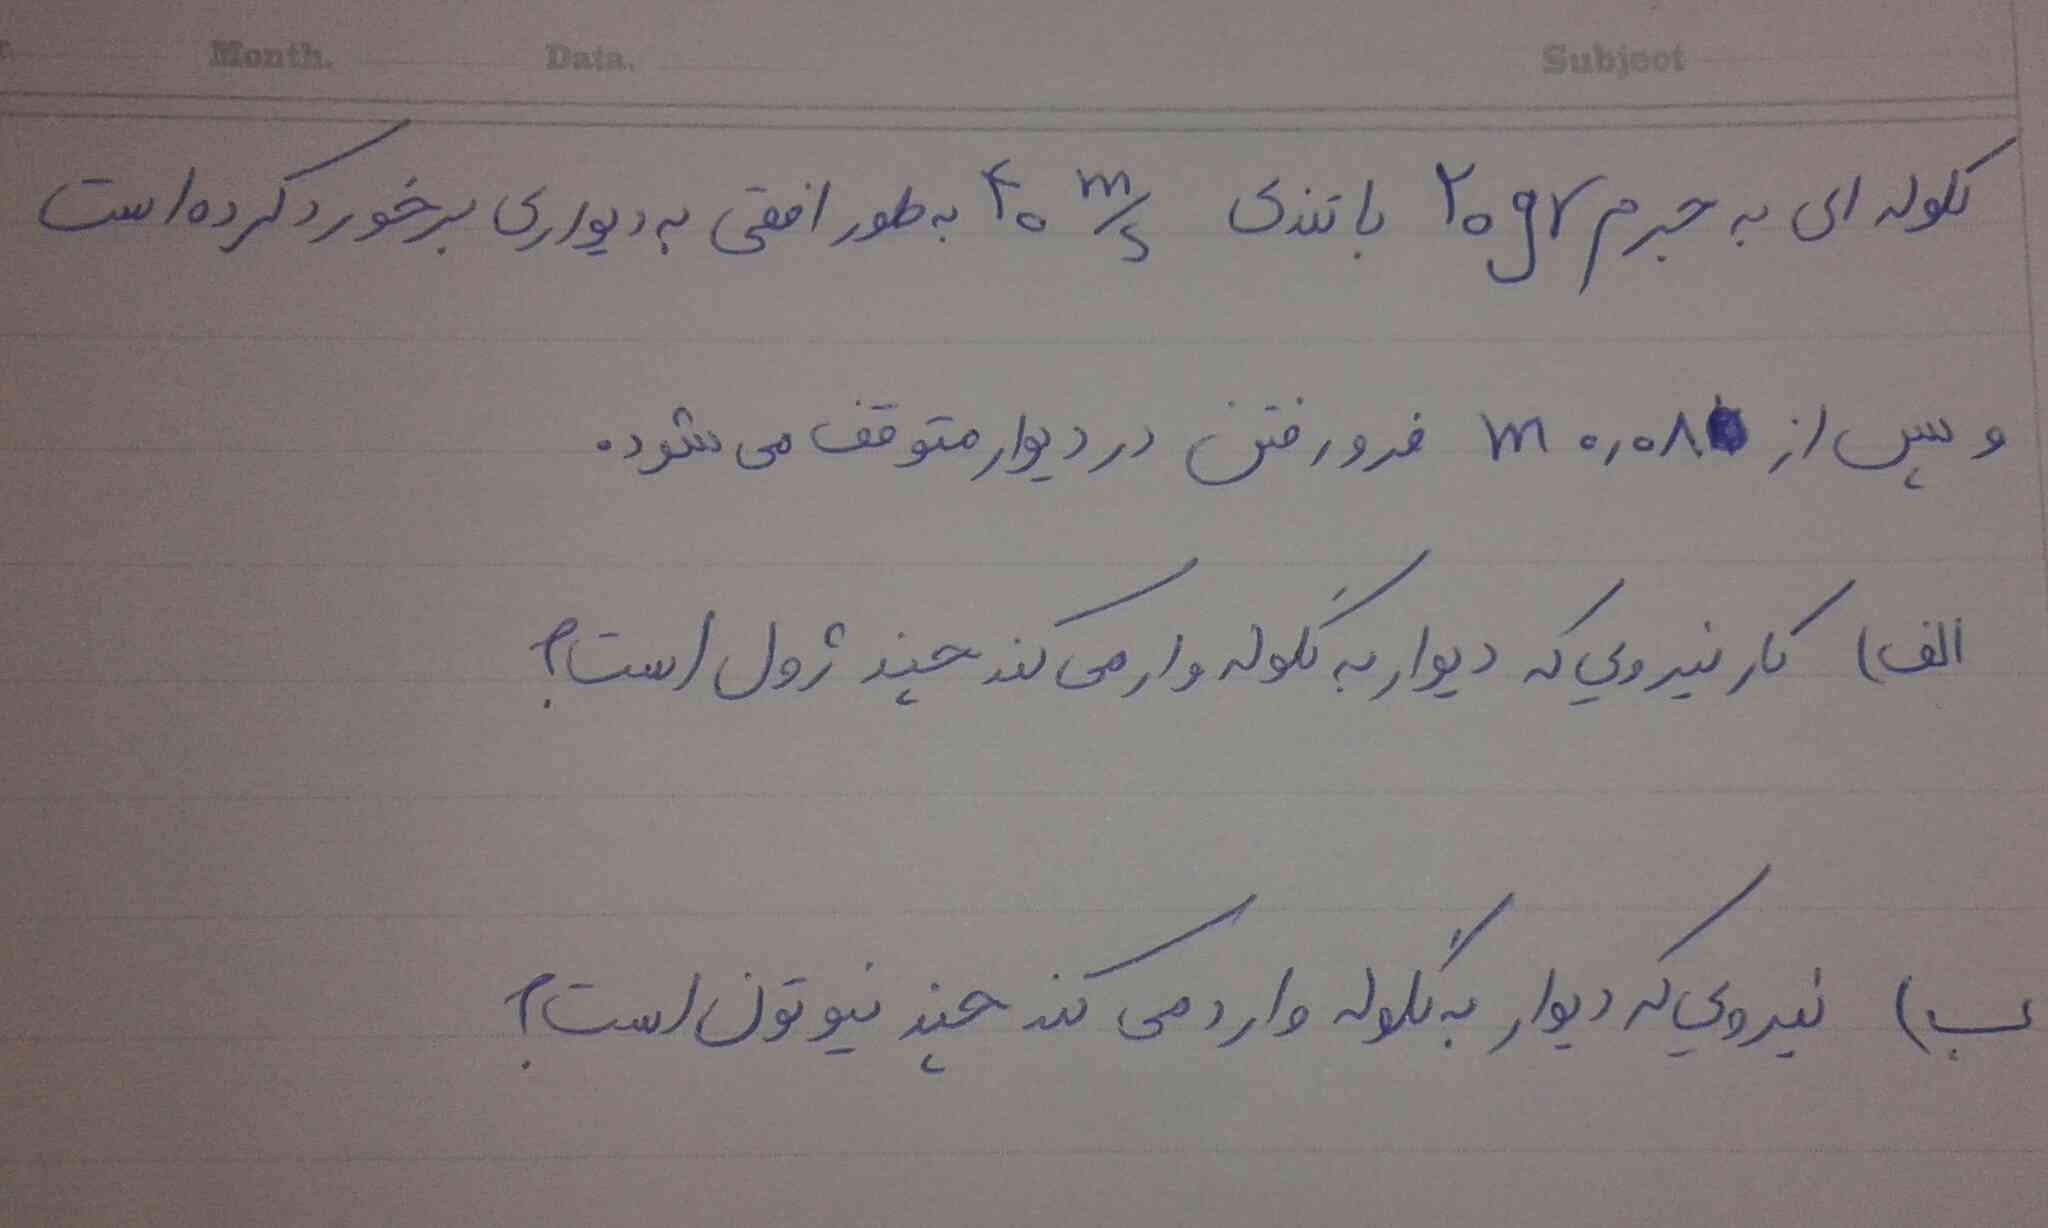 Month. Data. Subject
گلوله ای به جرم ۲۰gr با تندی ۴۰ m/s به طور افقی به دیواری برخورد کرده است
و پس از ۰٫۰۸ m فرورفتن در دیوار متوقف می شود.
الف) کار نیرویی که دیوار به گلوله وار می کند چند ژول است؟
ب) نیرویی که دیوار به گلوله وارد می کند چند نیوتون است؟